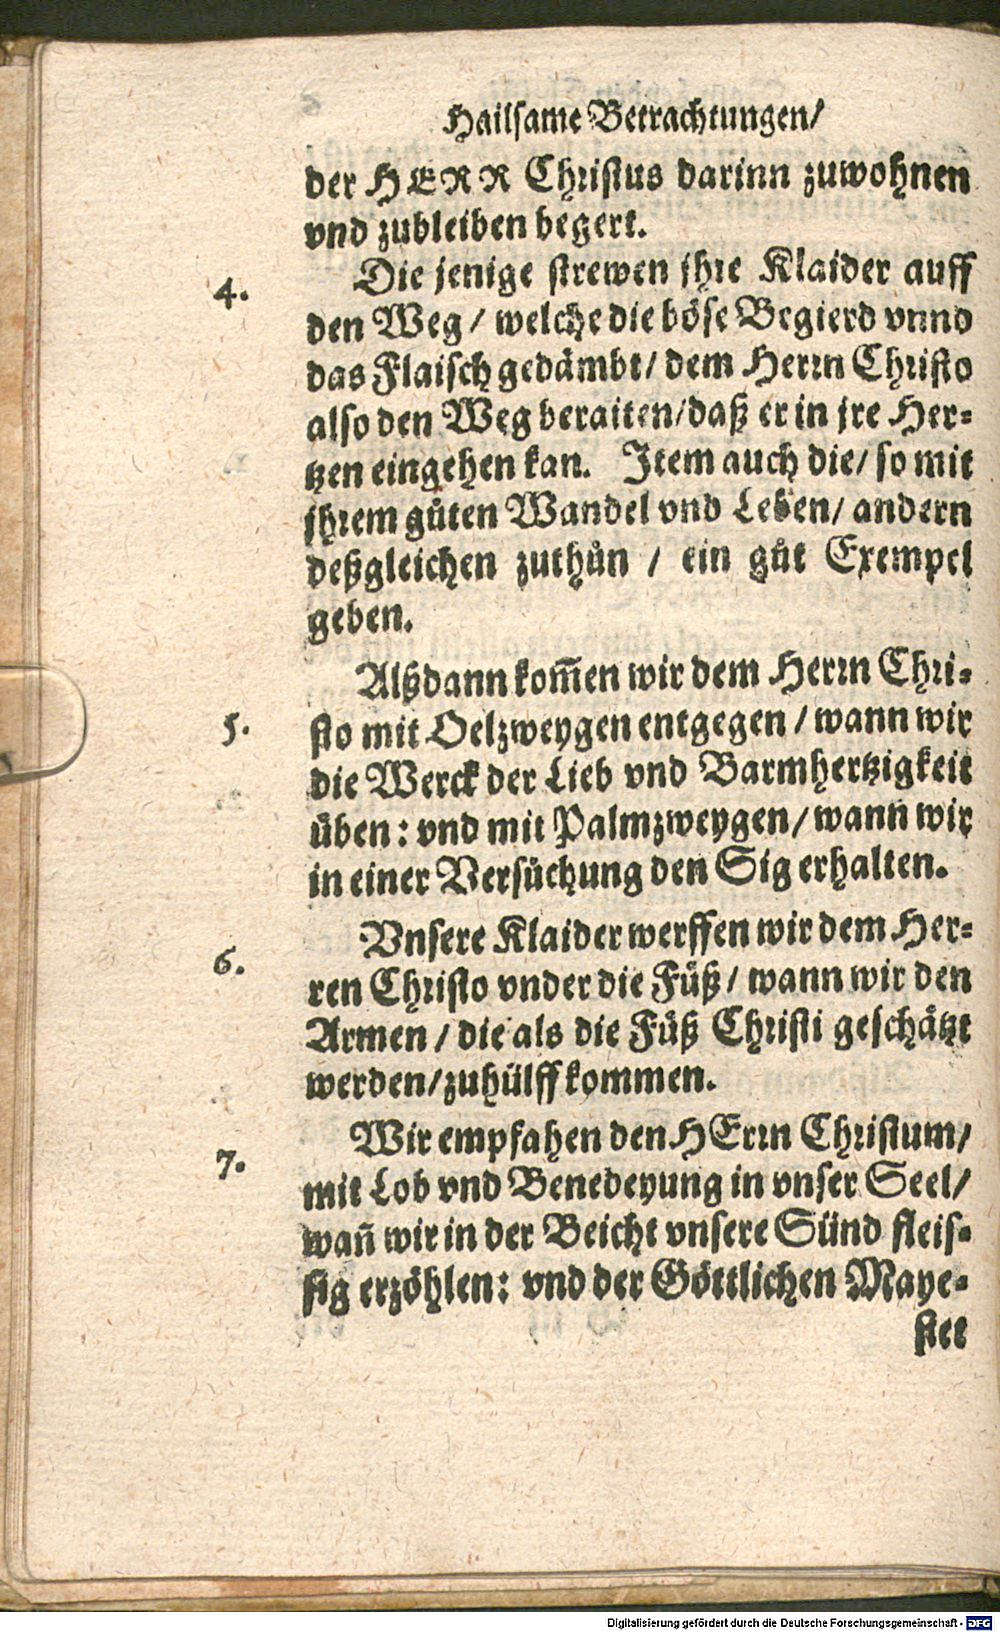 Hailsame Betrachtungen/
der HERR Christus darinn zuwohnen
vnd zubleiben begert.
4. Die jenige strewen jhre Klaider auff
den Weg/ welche die böse Begierd vnnd
das Flaisch gedämbt/ dem Herrn Christo
also den Weg beraiten/daß er in jre Her-
tzen eingehen kan. Item auch die/ so mit
jhrem gůten Wandel vnd Leben/ andern
deßgleichen zuthůn / ein gůt Exempel
geben.
Alßdann kom̃en wir dem Herrn Chri-
5. sto mit Oelzweygen entgegen / wann wir
die Werck der Lieb vnd Barmhertzigkeit
üben: vnd mit Palmzweygen/ wann wir
in einer Versůchung den Sig erhalten.
Vnsere Klaider werffen wir dem Her-
6. ren Christo vnder die Füß/ wann wir den
Armen / die als die Füß Christi geschätzt
werden/zuhülff kommen.
Wir empfahen den HErrn Christum/
7. mit Lob vnd Benedeyung in vnser Seel/
wañ wir in der Beicht vnsere Sünd fleis-
sig erzöhlen: vnd der Göttlichen Maye-
stet
Digitalisierung gefördert durch die Deutsche Forschungsgemeinschaft - DFG